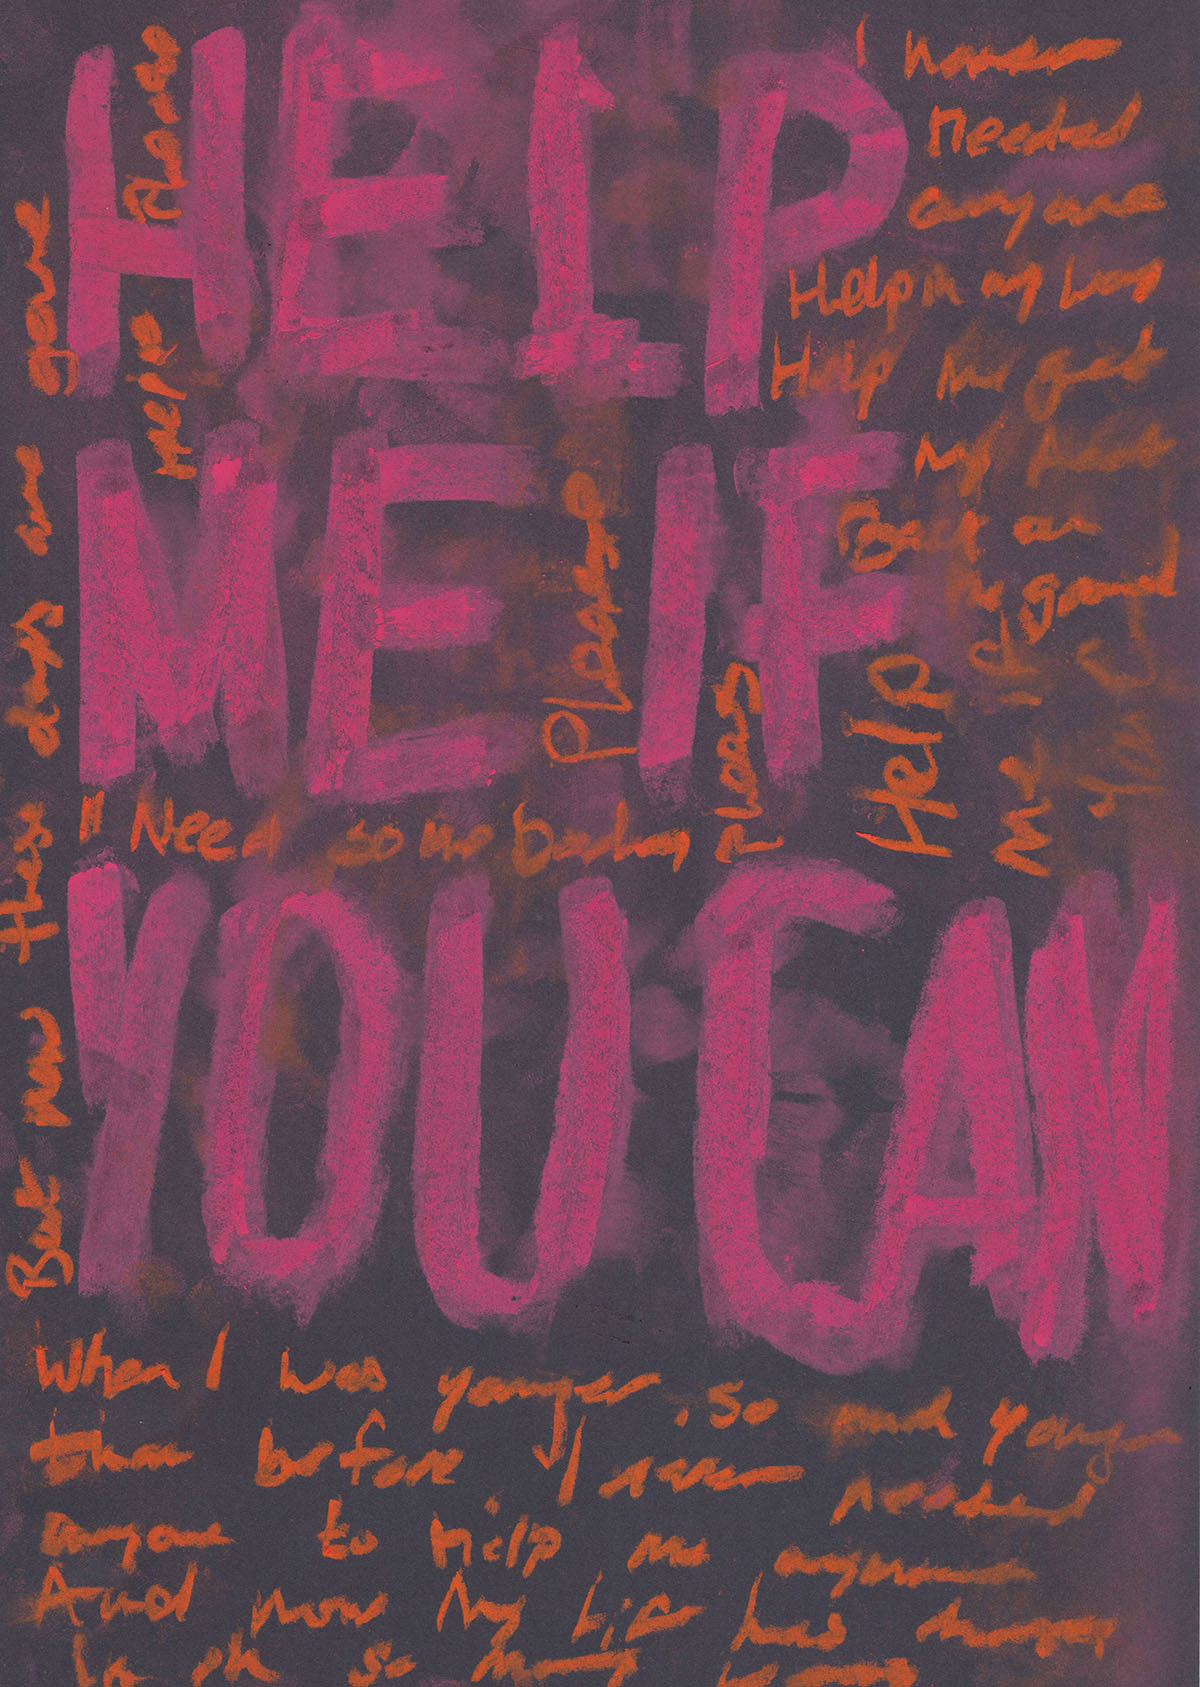 HELP
ME IF
YOU CAN
I never
Needed
anyone
Help in my way
Help me get
my feet
Back on
the
Ground
Help
me if
You C
Help Please
Please
Pleas
"Need some Body
But now these days are gone
When I was younger, so much younger
than before I never needed
anyone to Help me anymore
And now my Life has
so many